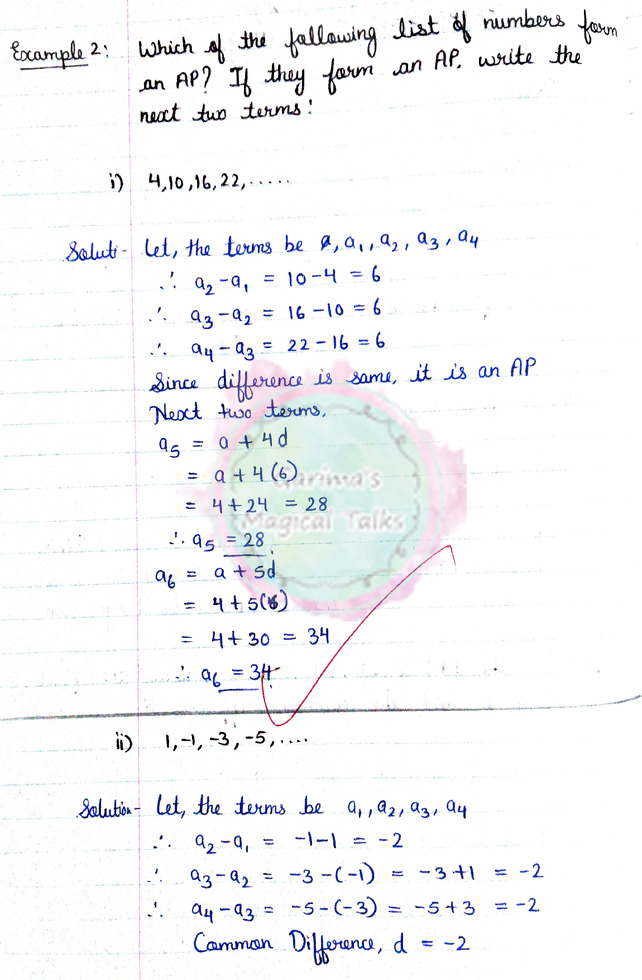 Example 2: Which of the following list of numbers form
an AP? If they form an AP, write the
next two terms:
i) 4,10,16,22,.....
Soluti- Let, the terms be a, a₁, a₂, a₃, a₄
∴ a₂-a₁ = 10-4 = 6
∴ a₃-a₂ = 16-10 = 6
∴ a₄-a₃ = 22-16 = 6
Since difference is same, it is an AP
Next two terms,
a₅ = a + 4d
= a + 4(6)
= 4+24 = 28
∴ a₅ = 28
a₆ = a + 5d
= 4+5(6)
= 4+30 = 34
∴ a₆ = 34
Garima's
Magical Talks
ii) 1,-1,-3,-5,....
Solution- Let, the terms be a₁, a₂, a₃, a₄
∴ a₂-a₁ = -1-1 = -2
∴ a₃-a₂ = -3-(-1) = -3+1 = -2
∴ a₄-a₃ = -5-(-3) = -5+3 = -2
Common Difference, d = -2